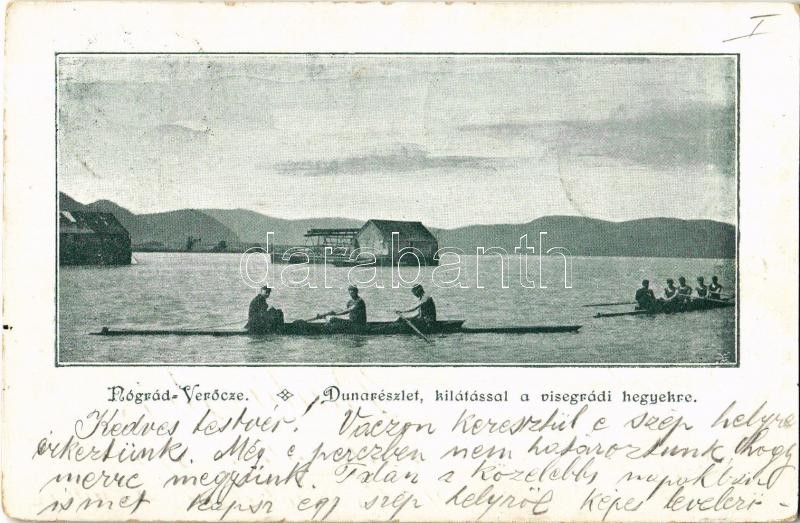 I
darabanth
Nógrád-Verőcze. Dunarészlet, kilátással a visegrádi hegyekre.
Kedves testvér! Váczon keresztül e szép helyre
érkeztünk. Még e perczben nem határoztunk, hogy
merre megyünk. Talán a közelebbi napokban
ismét kapsz egy szép helyről képes levelező-